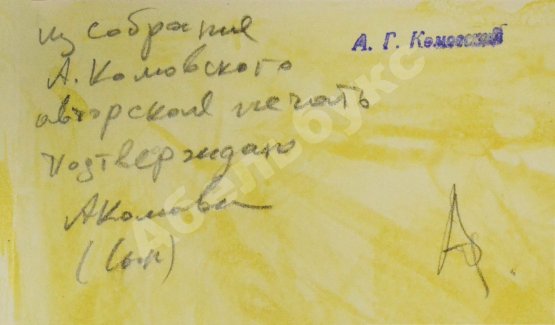 из собрания
А. Комовского
авторская печать
подтверждаю
АКомовск
(сын)
А. Г. Комовский
Абельбукс